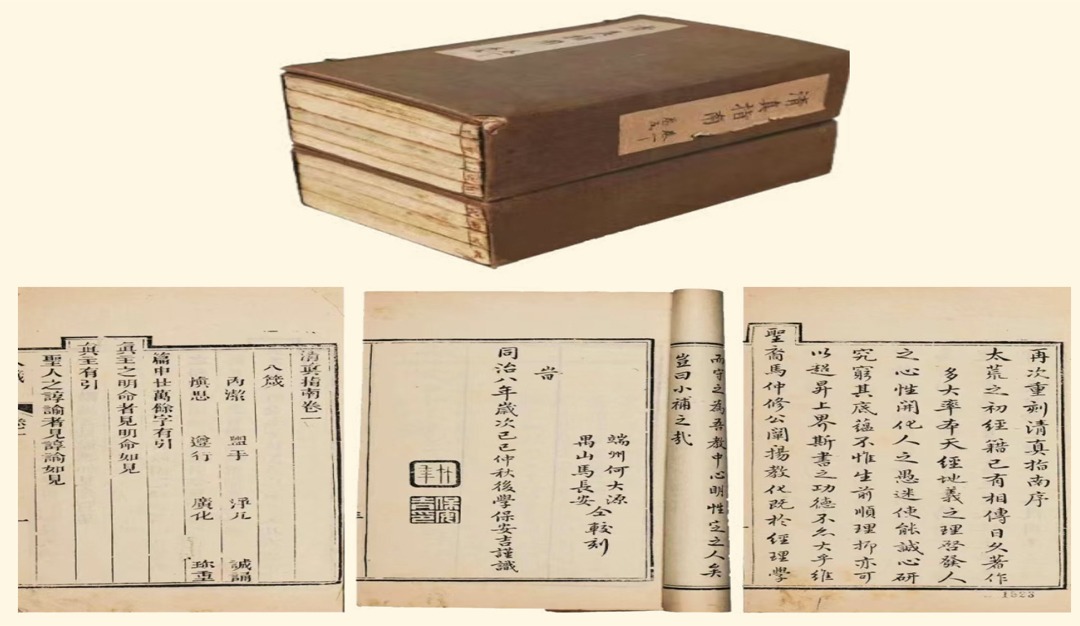 清真指南
清真指南卷一
八箴
內潔 盥手 淨几 誠誦
慎思 遵行 廣化 珍重
篇中廿萬餘字有引
真主之明命者見明命如見
真主有引
聖人之諄諭者見諄諭如見
而守之為吾教中心明性定之人矣
豈曰小補之哉
旹
端州何大源
禺山馬長安 仝較刻
同治八年歲次己巳仲秋後學保安吉謹識
再次重刻清真指南序
太荒之初經籍已有相傳日久著作
多大率本天經地義之理啓發人
之心性開化人之愚迷使能誠心研
究窮其底蘊不惟生前順理抑亦可
以超昇上界斯書之功德不亦大乎維
聖裔馬仲修公闡揚教化既於經理學
1523